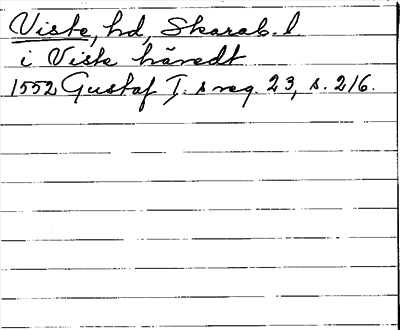 Viste, hd, Skarab. l.
i Viste häredt
1552 Gustaf I. s reg. 23, s. 216.